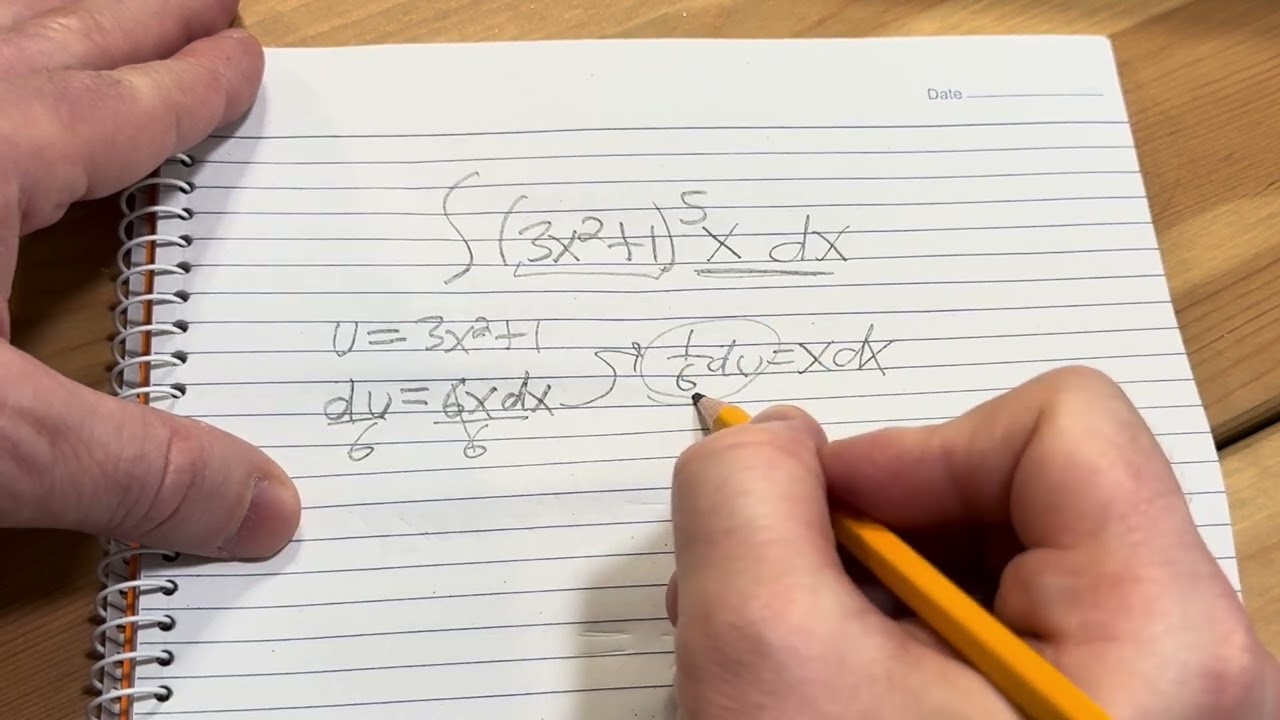 Date
∫ (3x²+1)⁵ x dx
u = 3x²+1
du/6 = 6x dx/6
1/6 du = x dx